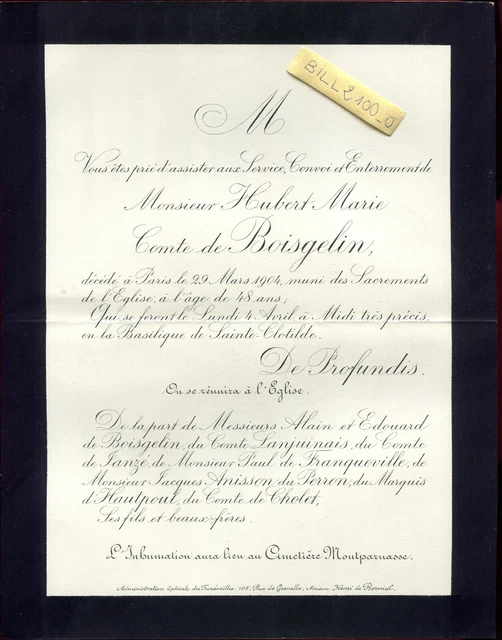 BILL2100_0
M
Vous êtes prié d'assister aux Service, Convoi et Enterrement de
Monsieur Hubert Marie
Comte de Boisgelin,
décédé à Paris le 29 Mars 1904, muni des Sacrements
de l'Eglise, à l'âge de 48 ans;
Qui se feront le Lundi 4 Avril, à Midi très précis,
en la Basilique de Sainte-Clotilde.
De Profundis.
On se réunira à l'Eglise.
De la part de Messieurs Alain et Edouard
de Boisgelin, du Comte Lanjuinais, du Comte
de Janzé, de Monsieur Paul de Franqueville, de
Monsieur Jacques Anisson du Perron, du Marquis
d'Hautpoul, du Comte de Cholet,
Ses fils et beaux-frères.
L'Inhumation aura lieu au Cimetière Montparnasse.
Administration Spéciale des Funérailles. 105, Rue de Grenelle, Maison Henri de Borniol.